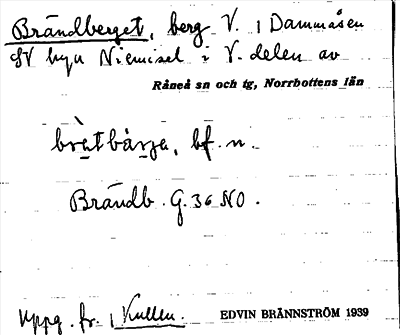 Brändberget, berg V. i Dammåsen
SV byn Niemisel i V. delen av
Råneå sn och tg, Norrbottens län
brätbärja, bf. n.
Brändb. G. 36 NO.
Uppg. fr. Kullen.
EDVIN BRÄNNSTRÖM 1939